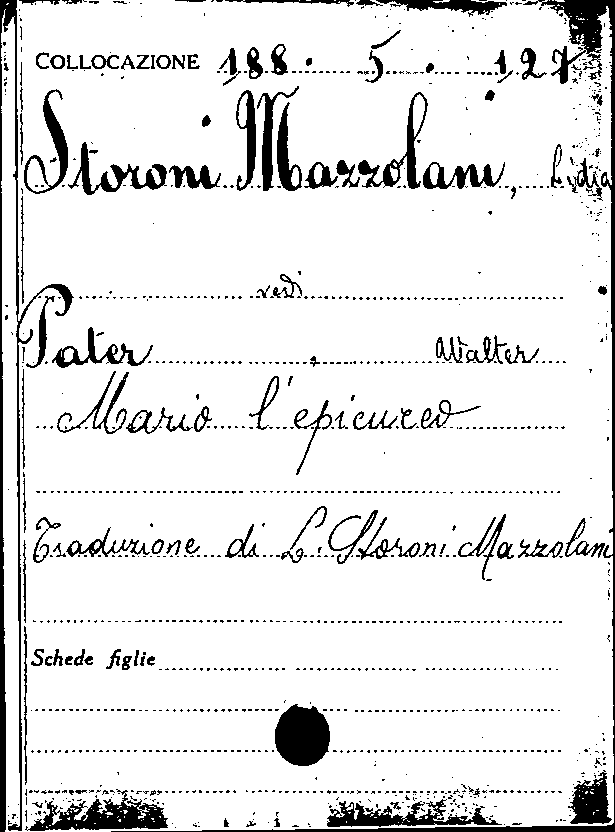 COLLOCAZIONE 188. 5. 127
Storoni Mazzolani, Lidia
vedi
Pater, Walter
Mario l'epicureo
Traduzione di L. Storoni Mazzolani
Schede figlie